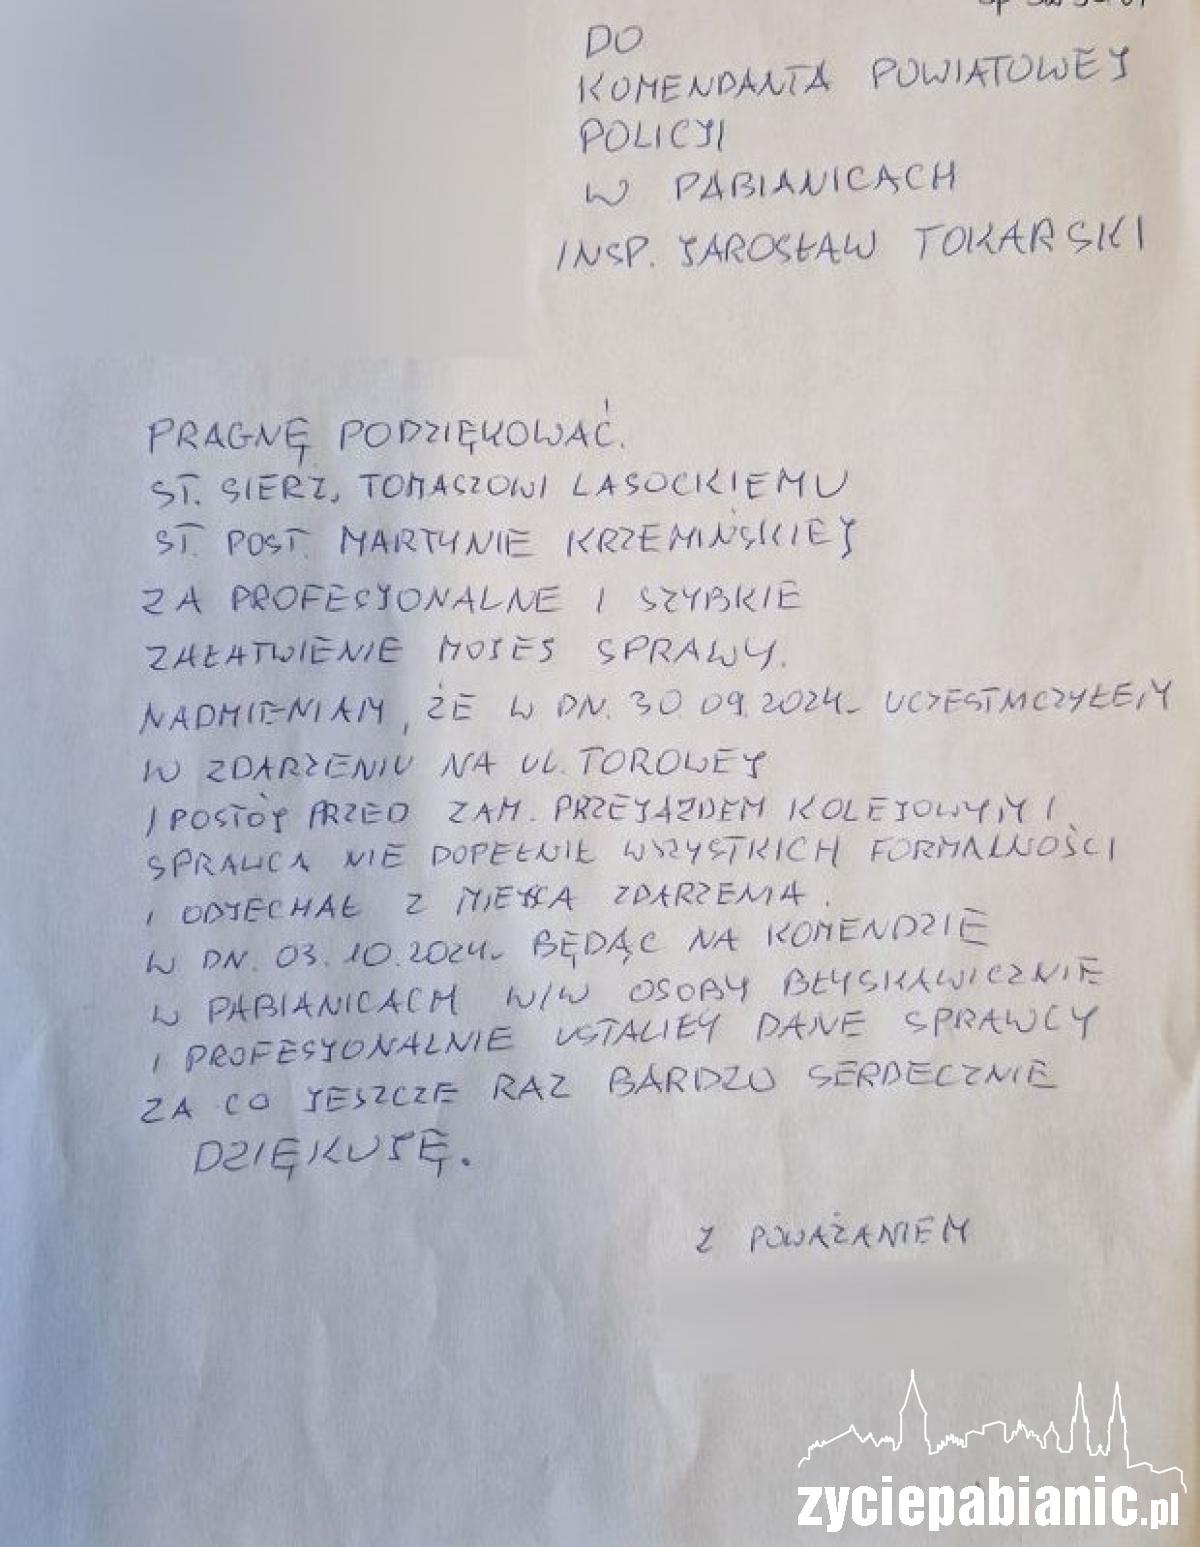 DO
KOMENDANTA POWIATOWEJ
POLICJI
W PABIANICACH
INSP. JAROSŁAW TOKARSKI
PRAGNĘ PODZIĘKOWAĆ.
ST. SIERŻ. TOMASZOWI LASOCKIEMU
ST. POST. MARTYNIE KRZEMIŃSKIEJ
ZA PROFESJONALNE I SZYBKIE
ZAŁATWIENIE MOJEJ SPRAWY.
NADMIENIAM, ŻE W DN. 30.09.2024 UCZESTNICZYŁEM
W ZDARZENIU NA UL. TOROWEJ
/POSTÓJ PRZED ZAM. PRZEJAZDEM KOLEJOWYM/.
SPRAWCA NIE DOPEŁNIŁ WSZYSTKICH FORMALNOŚCI
I ODJECHAŁ Z MIEJSCA ZDARZENIA.
W DN. 03.10.2024 BĘDĄC NA KOMENDZIE
W PABIANICACH W/W OSOBY BŁYSKAWICZNIE
I PROFESJONALNIE USTALIŁY DANE SPRAWCY
ZA CO JESZCZE RAZ BARDZO SERDECZNIE
DZIĘKUJĘ.
Z POWAŻANIEM
zyciepabianic.pl